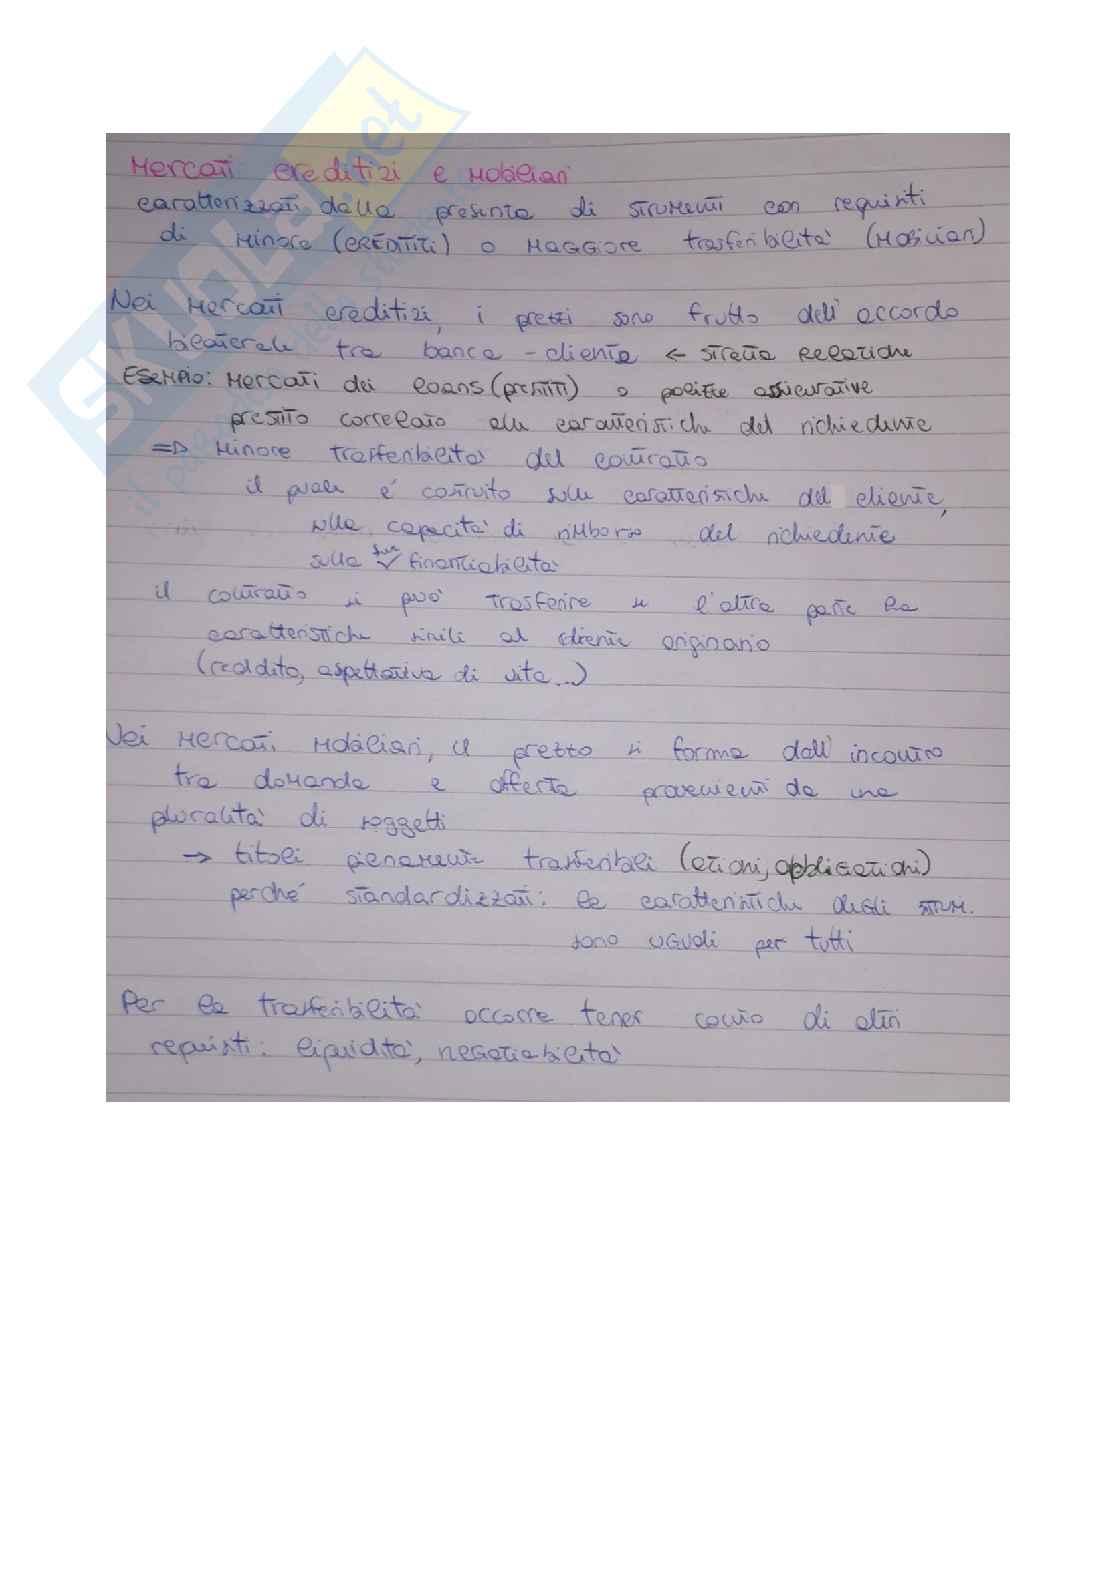 Mercati creditizi e Mobiliari
caratterizzati dalla presenza di strumenti con requisiti
di minore (CREDITIZI) o MAGGIORE trasferibilità (MOBILIARI)
Nei mercati creditizi, i prezzi sono frutto dell'accordo
bilaterale tra banca - cliente ← stretta relazione
ESEMPIO: Mercati dei loans (prestiti) o polizze assicurative
prestito correlato alle caratteristiche del richiedente
=> Minore trasferibilità del contratto
il quale é costruito sulle caratteristiche del cliente,
sulla capacità di rimborso del richiedente
sulla sua finanziabilità
il contratto si può trasferire se l'altra parte ha
caratteristiche simili al cliente originario
(reddito, aspettativa di vita...)
Nei mercati mobiliari, il prezzo si forma dall'incontro
tra domanda e offerta provenienti da una
pluralità di soggetti
→ titoli pienamente trasferibili (azioni, obbligazioni)
perché standardizzati: le caratteristiche degli strum.
sono uguali per tutti
Per la trasferibilità occorre tener conto di altri
requisiti: liquidità, negoziabilità
SKUOLA.net